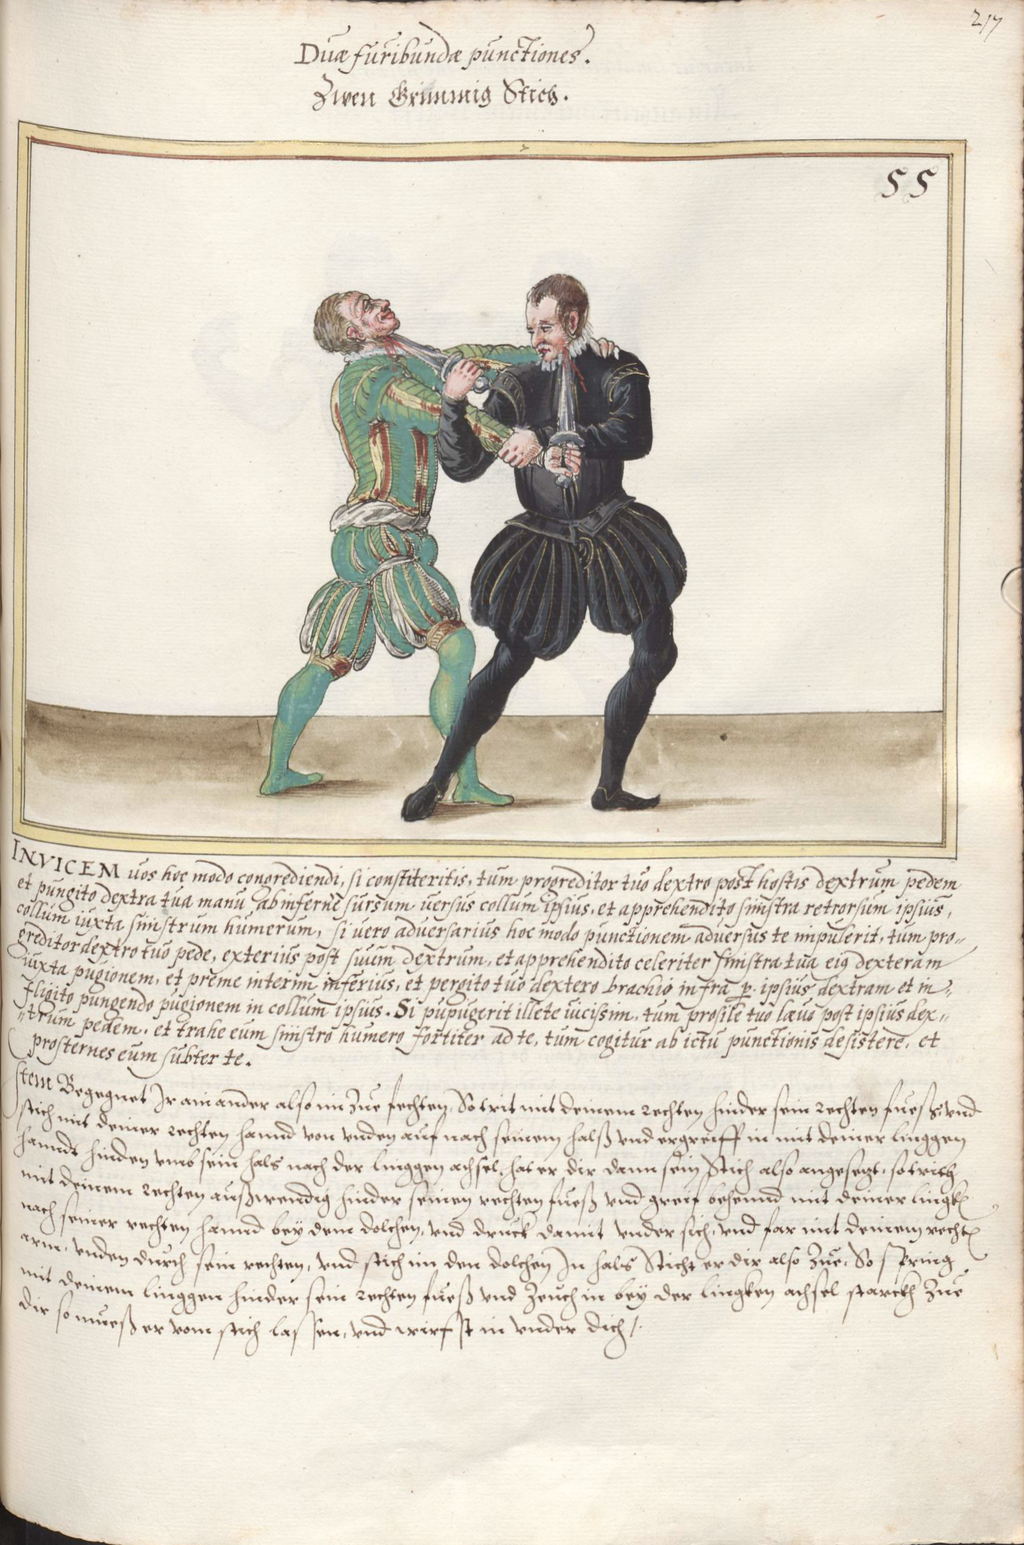 217
Duæ furibundæ punctiones.
Zwen Grimmig Stich.
55
INVICEM uos hoc modo congrediendi, si constiteritis, tum progreditor tuo dextro post hostis dextrum pedem
et pungito dextra tua manu ab inferne sursum uersus collum ipsius, et apprehendito sinistra retrorsum ipsius,
collum iuxta sinistrum humerum, si uero aduersarius hoc modo punctionem aduersus te impulerit, tum pro=
greditor dextro tuo pede, exterius post suum dextrum, et apprehendito celeriter sinistra tua eiꝰ dexteram
iuxta pugionem, et preme interim inferius, et pergito tuo dextero brachio infra p. ipsius dextram et in=
fligito pungendo pugionem in collum ipsius. Si pupugerit ille te uicissim, tum prosile tuo læuo post ipsius dex=
=trum pedem, et trahe eum sinistro humero fortiter ad te, tum cogitur ab ictu punctionis desistere, et
prosternes eum subter te.
Item Begegnet Ir ain ander also im Zue fechten, So trit mit deinem rechten hinder sein rechten fuess vnd
stich mit deiner rechten hannd von vnden auf nach seinem halß vnd ergreiff in mit deiner linggen
hanndt hinden vmb sein hals nach der linggen achsel, hat er dir dann sein Stich also angesezt, so trith
mit deinem rechten außwendig hinder seinen rechten fuess vnd greif behennd mit deiner lingk
nach seiner rechten hannd bey dem dolchen, vnd druck damit vnder sich, vnd far mit deinem recht
arm, vnden durch sein rechten, vnd stich im den dolchen In hals Sticht er dir also Zue, So spring
mit deinem linggen hinder sein rechten fueß vnd Zeuch in bey der lingken achsel starckh Zue
dir so mueß er vom stich lassen, vnd wirfst in vnder dich /.